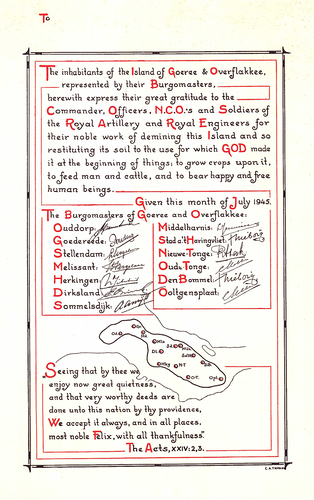 To
The inhabitants of the Island of Goeree & Overflakkee,
represented by their Burgomasters,
herewith express their great gratitude to the
Commander, Officers, N.C.O.'s and Soldiers of
the Royal Artillery and Royal Engineers for
their noble work of demining this Island and so
restituting its soil to the use for which GOD made
it at the beginning of things; to grow crops upon it,
to feed man and cattle, and to bear happy and free
human beings.
Given this month of July 1945.
The Burgomasters of Goeree and Overflakkee:
Ouddorp:
Goedereede:
Stellendam:
Melissant:
Herkingen:
Dirksland:
Sommelsdijk:
Middelharnis:
Stad a/t Haringvliet:
Nieuwe-Tonge:
Oude-Tonge:
Den Bommel:
Ooltgensplaat:
Seeing that by thee we
enjoy now great quietness,
and that very worthy deeds are
done unto this nation by thy providence,
We accept it always, and in all places,
most noble Felix, with all thankfulness."
The Acts, XXIV:2,3.